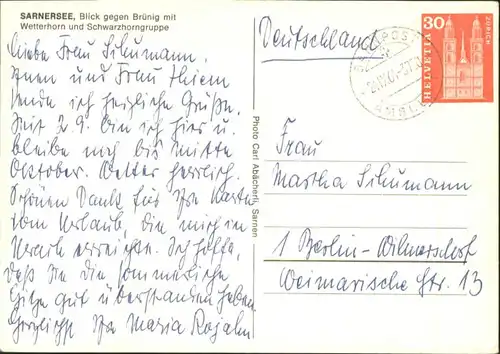 SARNERSEE, Blick gegen Brünig mit
Wetterhorn und Schwarzhorngruppe
Liebe Frau Schumann.
Ihnen und Frau Thiem
sende ich herzliche Grüße.
Seit 2.9. bin ich hier u.
bleibe noch bis mitte
Oktober. Wetter herrlich.
Schönen Dank für Ihre Karte
vom Urlaub, die mich in
erreichte. Ich hoffe,
daß Sie die sommerliche
Hitze gut überstanden haben
Herzlichst Ihre Maria
Photo Carl Abächerli, Sarnen
Deutschland
30
HELVETIA
ZÜRICH
Frau
Martha Schumann
1 Berlin-Wilmersdorf
Weimarische Str. 13